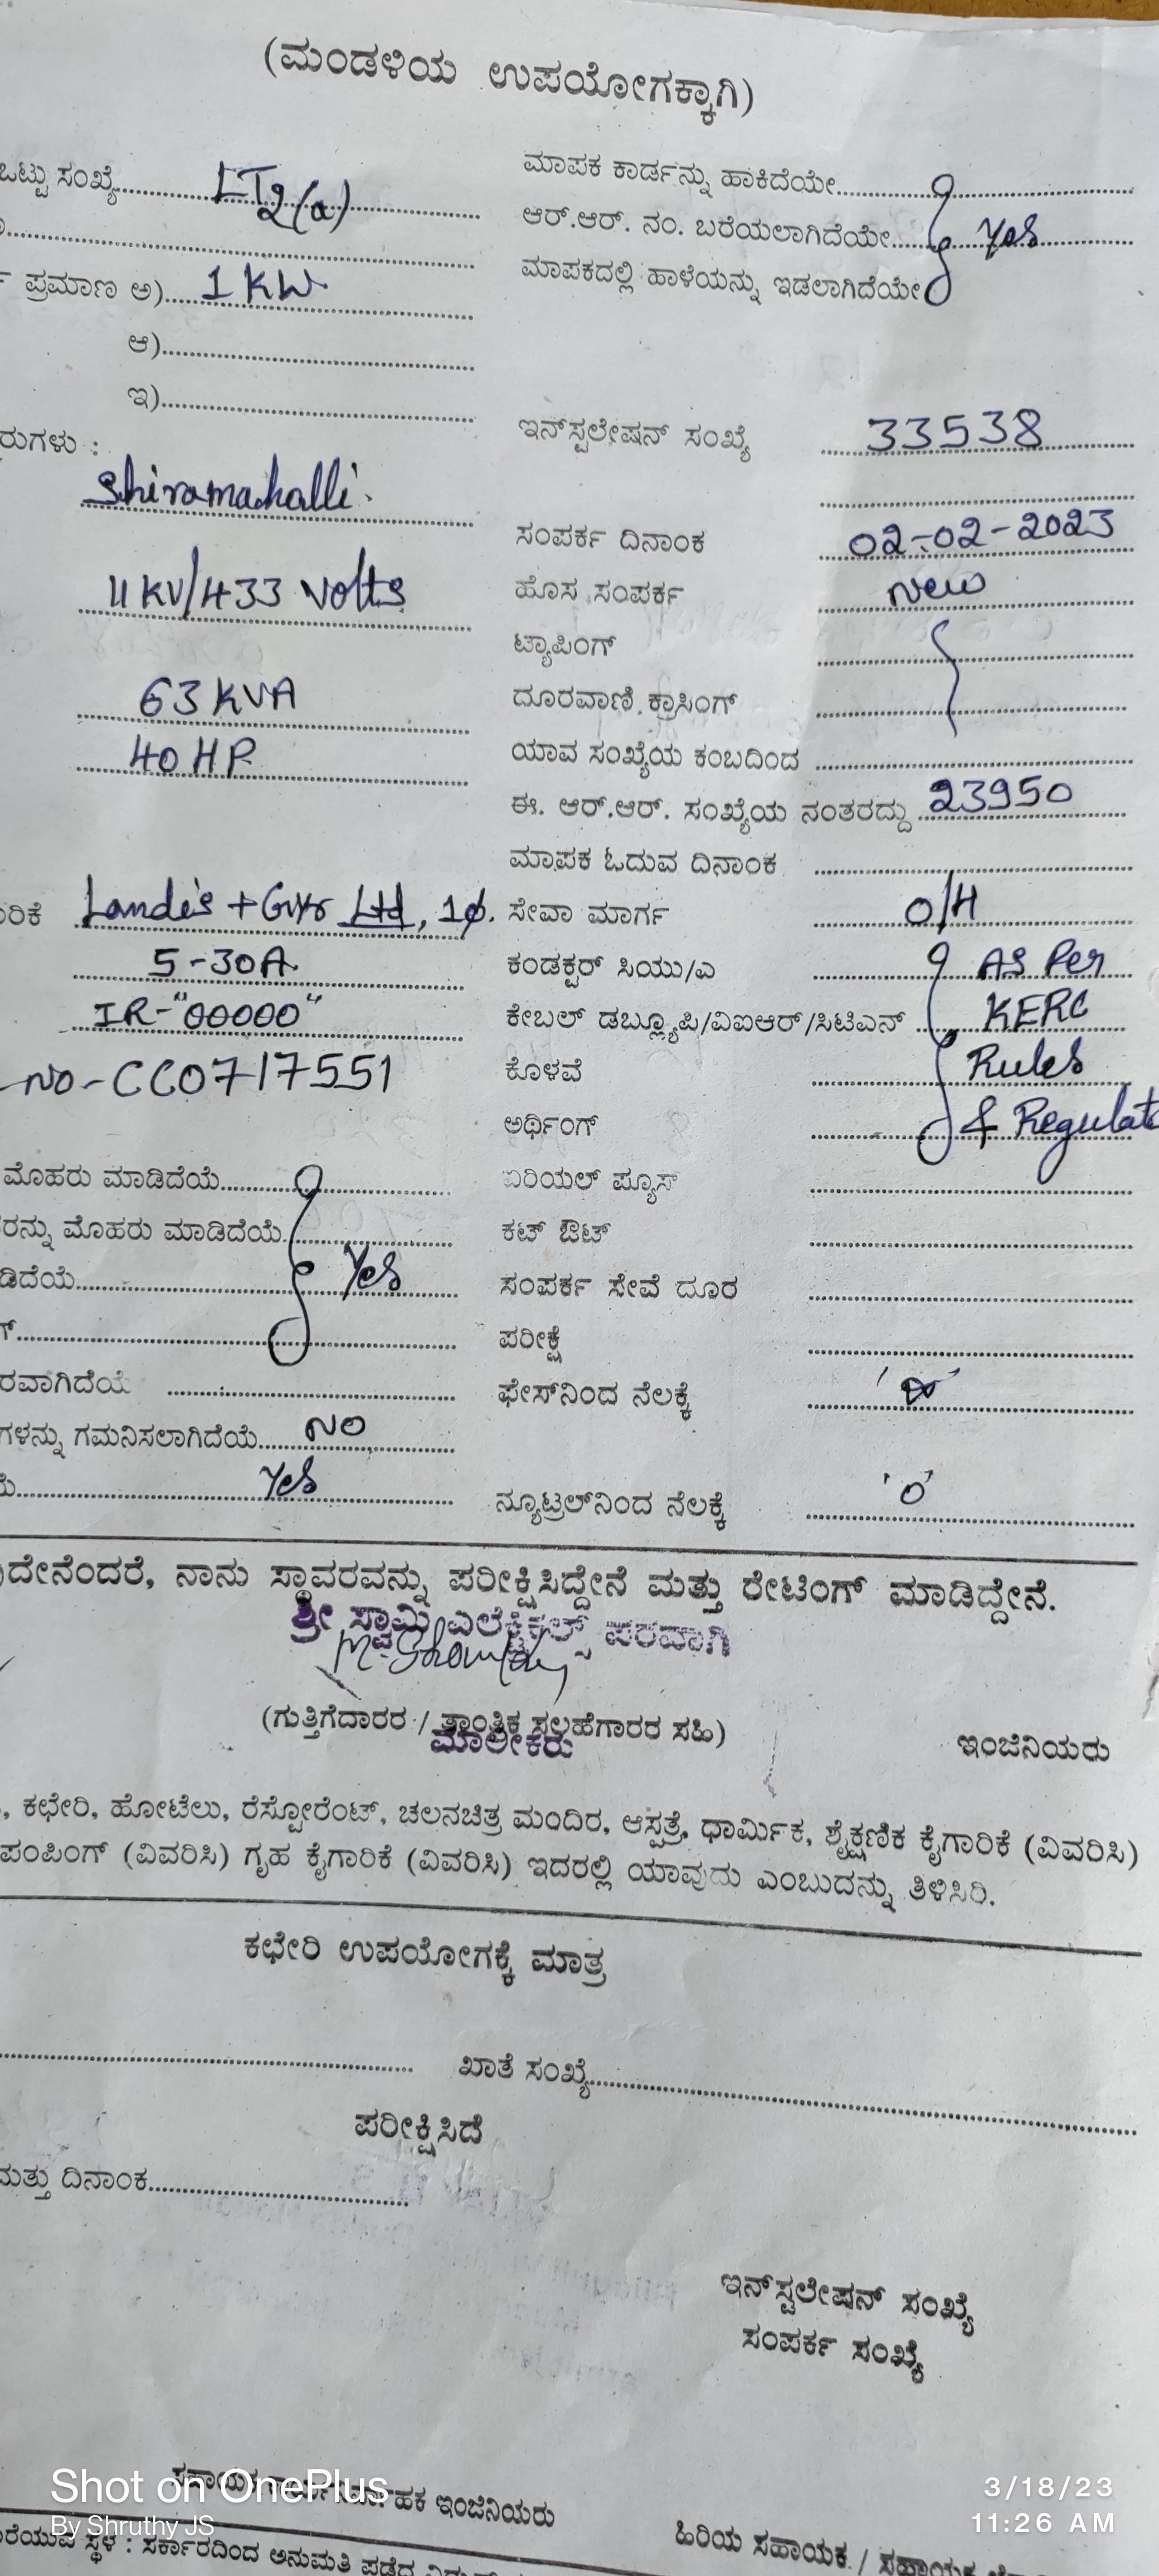 (ಮಂಡಳಿಯ ಉಪಯೋಗಕ್ಕಾಗಿ)
ಒಟ್ಟು ಸಂಖ್ಯೆ LT2(a)
ಪ್ರಮಾಣ ಅ) 1 KW
ಆ)
ಇ)
ರುಗಳು :
Shiramahalli
11 KV/433 Volts
63 KVA
40 HP
ರಿಕೆ Landis + Gyr Ltd, 1ø.
5-30A
IR-"00000"
NO-CC0717551
ಮೊಹರು ಮಾಡಿದೆಯೆ
ರನ್ನು ಮೊಹರು ಮಾಡಿದೆಯೆ
ಡಿದೆಯೆ Yes
ರವಾಗಿದೆಯೆ
ಗಳನ್ನು ಗಮನಿಸಲಾಗಿದೆಯೆ NO
Yes
ಮಾಪಕ ಕಾರ್ಡನ್ನು ಹಾಕಿದೆಯೇ
ಆರ್.ಆರ್. ನಂ. ಬರೆಯಲಾಗಿದೆಯೇ Yes
ಮಾಪಕದಲ್ಲಿ ಹಾಳೆಯನ್ನು ಇಡಲಾಗಿದೆಯೇ
ಇನ್‌ಸ್ಟಲೇಷನ್ ಸಂಖ್ಯೆ 33538
ಸಂಪರ್ಕ ದಿನಾಂಕ 02-02-2023
ಹೊಸ ಸಂಪರ್ಕ New
ಟ್ಯಾಪಿಂಗ್
ದೂರವಾಣಿ ಕ್ರಾಸಿಂಗ್
ಯಾವ ಸಂಖ್ಯೆಯ ಕಂಬದಿಂದ
ಈ. ಆರ್.ಆರ್. ಸಂಖ್ಯೆಯ ನಂತರದ್ದು 23950
ಮಾಪಕ ಓದುವ ದಿನಾಂಕ
ಸೇವಾ ಮಾರ್ಗ O/H
ಕಂಡಕ್ಟರ್ ಸಿಯು/ಎ As Per
ಕೇಬಲ್ ಡಬ್ಲ್ಯೂಪಿ/ವಿಐಆರ್/ಸಿಟಿಎನ್ KERC
ಕೊಳವೆ Rules
ಅರ್ಥಿಂಗ್ & Regulat
ಏರಿಯಲ್ ಪ್ಯೂಸ್
ಕಟ್ ಔಟ್
ಸಂಪರ್ಕ ಸೇವೆ ದೂರ
ಪರೀಕ್ಷೆ
ಫೇಸ್‌ನಿಂದ ನೆಲಕ್ಕೆ
ನ್ಯೂಟ್ರಲ್‌ನಿಂದ ನೆಲಕ್ಕೆ 'o'
ದೇನೆಂದರೆ, ನಾನು ಸ್ಥಾವರವನ್ನು ಪರೀಕ್ಷಿಸಿದ್ದೇನೆ ಮತ್ತು ರೇಟಿಂಗ್ ಮಾಡಿದ್ದೇನೆ.
ಶ್ರೀ ಸ್ವಾಮಿ ಎಲೆಕ್ಟ್ರಿಕಲ್ಸ್ ಪರವಾಗಿ
(ಗುತ್ತಿಗೆದಾರರ / ತಾಂತ್ರಿಕ ಸಲಹೆಗಾರರ ಸಹಿ)
ಮಾಲೀಕರು
ಇಂಜಿನಿಯರು
, ಕಛೇರಿ, ಹೋಟೆಲು, ರೆಸ್ಟೋರೆಂಟ್, ಚಲನಚಿತ್ರ ಮಂದಿರ, ಆಸ್ಪತ್ರೆ, ಧಾರ್ಮಿಕ, ಶೈಕ್ಷಣಿಕ ಕೈಗಾರಿಕೆ (ವಿವರಿಸಿ)
ಪಂಪಿಂಗ್ (ವಿವರಿಸಿ) ಗೃಹ ಕೈಗಾರಿಕೆ (ವಿವರಿಸಿ) ಇದರಲ್ಲಿ ಯಾವುದು ಎಂಬುದನ್ನು ತಿಳಿಸಿರಿ.
ಕಛೇರಿ ಉಪಯೋಗಕ್ಕೆ ಮಾತ್ರ
ಖಾತೆ ಸಂಖ್ಯೆ
ಪರೀಕ್ಷಿಸಿದೆ
ಮತ್ತು ದಿನಾಂಕ
ಇನ್‌ಸ್ಟಲೇಷನ್ ಸಂಖ್ಯೆ
ಸಂಪರ್ಕ ಸಂಖ್ಯೆ
ಇಂಜಿನಿಯರು
ಹಿರಿಯ ಸಹಾಯಕ / ಸಹಾಯಕ
ರೆಯುವ ಸ್ಥಳ : ಸರ್ಕಾರದಿಂದ ಅನುಮತಿ ಪಡೆದ
Shot on OnePlus
By Shruthy JS
3/18/23
11:26 AM